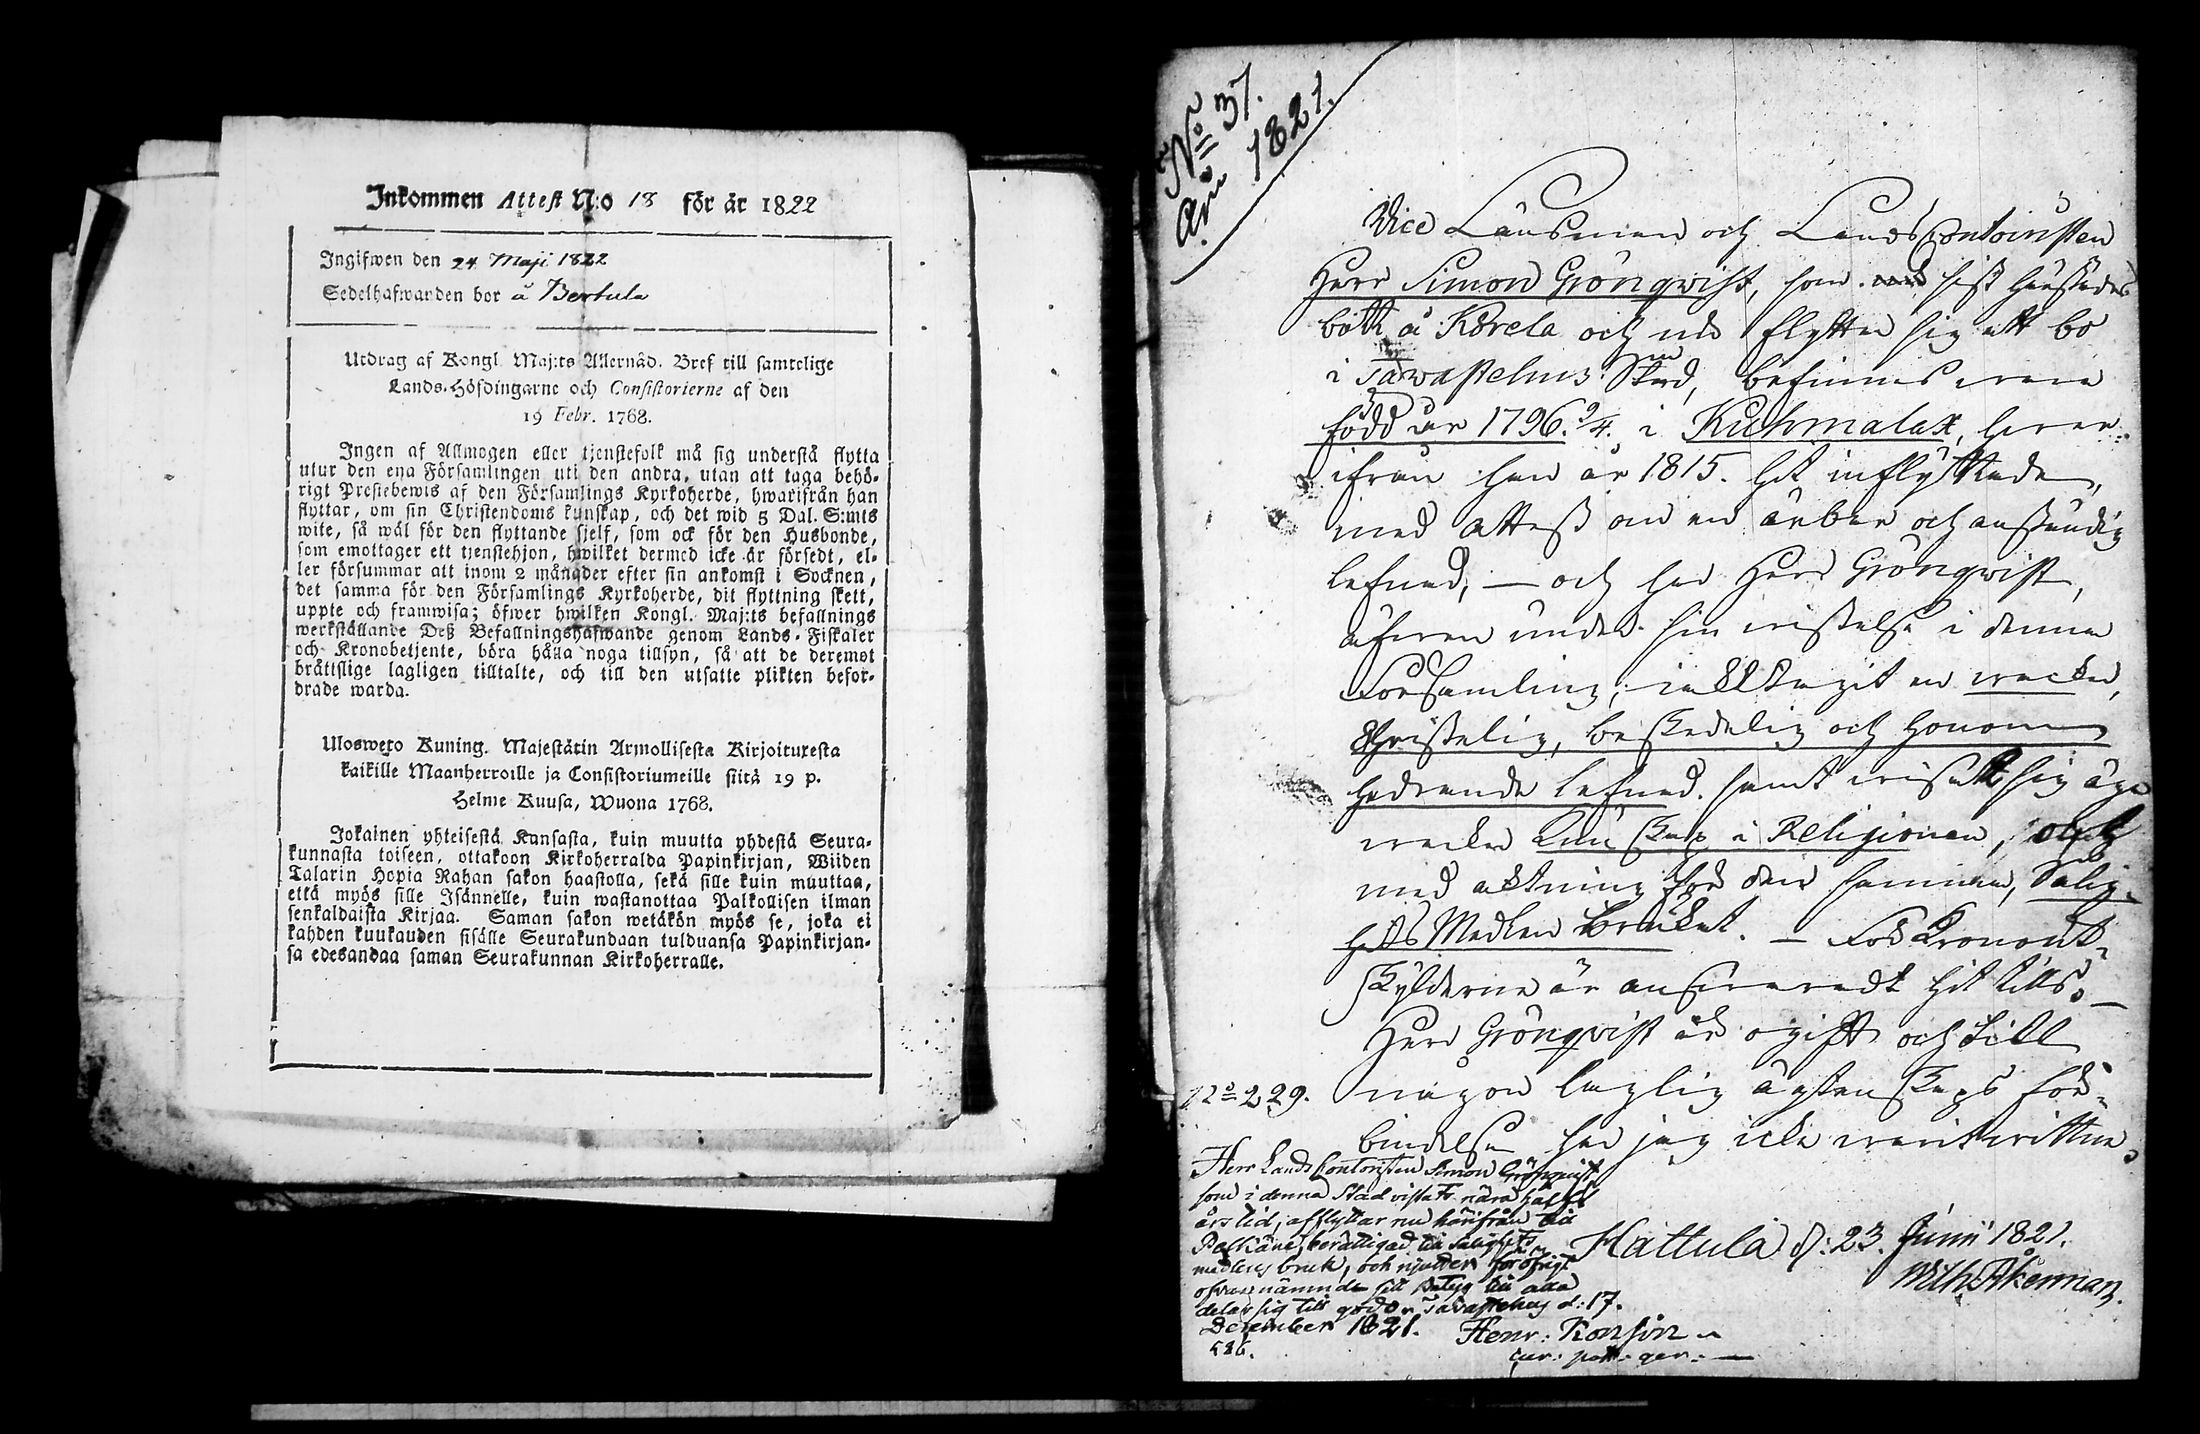 Inkommen Attest N:o 18 för år 1822
Ingifwen den 24 Maji 1822
Sedelhafwanden bor å Bertula
Utdrag af Kongl. Maj:ts Allernåd. Bref till samtelige
Lands-Höfdingarne och Consistorierne af den
19 Febr. 1768.
Ingen af Allmogen eller tjenstefolk må sig understå flytta
utur den ena Församlingen uti den andra, utan att taga behö-
rigt Prestebewis af den Församlings Kyrkoherde, hwarifrån han
flyttar, om sin Christendoms kunskap, och det wid 5 Dal. S:mts
wite, så wäl för den flyttande sjelf, som ock för den Husbonde,
som emottager ett tjenstehjon, hwilket dermed icke är försedt, el-
ler försummar att inom 2 månader efter sin ankomst i Socknen,
det samma för den Församlings Kyrkoherde, dit flyttning skett,
uppte och framwisa; öfwer hwilken Kongl. Maj:ts befallnings
werkställande Deß Befallningshafwande genom Lands-Fiskaler
och Kronobetjente, böra hålla noga tillsyn, så att de deremot
bråttslige lagligen tilltalte, och till den utsatte plikten befor-
drade warda.
Ulosweto Kuning. Majestätin Armollisesta Kirjoituxesta
kaikille Maanherroille ja Consistoriumeille siitä 19 p.
Helme Kuusa, Wuona 1768.
Jokainen yhteisestä Kansasta, kuin muutta yhdestä Seura-
kunnasta toiseen, ottakoon Kirkoherralda Papinkirjan, Wiiden
Talarin Hopia Rahan sakon haastolla, sekä sille kuin muuttaa,
että myös sille Isännelle, kuin wastanottaa Palkollisen ilman
senkaldaista Kirjaa. Saman sakon wetäkön myös se, joka ei
kahden kuukauden sisälle Seurakundaan tulduansa Papinkirjan-
sa edesandaa saman Seurakunnan Kirkoherralle.
No 37.
År 1821.
Vice Länsman och Landscontoirsten
Herr Simon Grönqwist, som sist härstädes
bott å Karela och nu flyttar sig att bo
i Tawastehus Stad, befinnes wara
född år 1796 9/4. i Kuhmalax, hwar-
ifrån han år 1815. hit inflyttade,
med attest om en ärbar och anständig
lefnad, — och har Herr Grönqwist,
äfwen under sin wistelse i denna
Församling, iakttagit en wacker,
Christelig, beskedelig och honom
hedrande lefnad. samt wisat sig äga
wacker Kunskap i Religionen, och
med aktning för den samma, Salig-
hets Medlen brukat. — För Kronout-
skylderne är answaradt hit tills. —
Herr Grönqwist är ogift och till
No 229. någon laglig äktenskaps för-
bindelse har jag icke warit wittne.
Hattula d: 23. Junii 1821.
Wilh. Åkerman.
Herr Lands Contoristen Simon Grönqwist
som i denna Stad vistats nära half
års tid, afflyttar nu härifrån till
Pälkäne, berättigad till Salighets
medlens bruk, och njuter för öfrigt
ofvannämnde sitt betyg till alla
delar sig till godo. Tavastehus d: 17.
December 1821. Henr: Konsin
586.
cur: past: ger: —